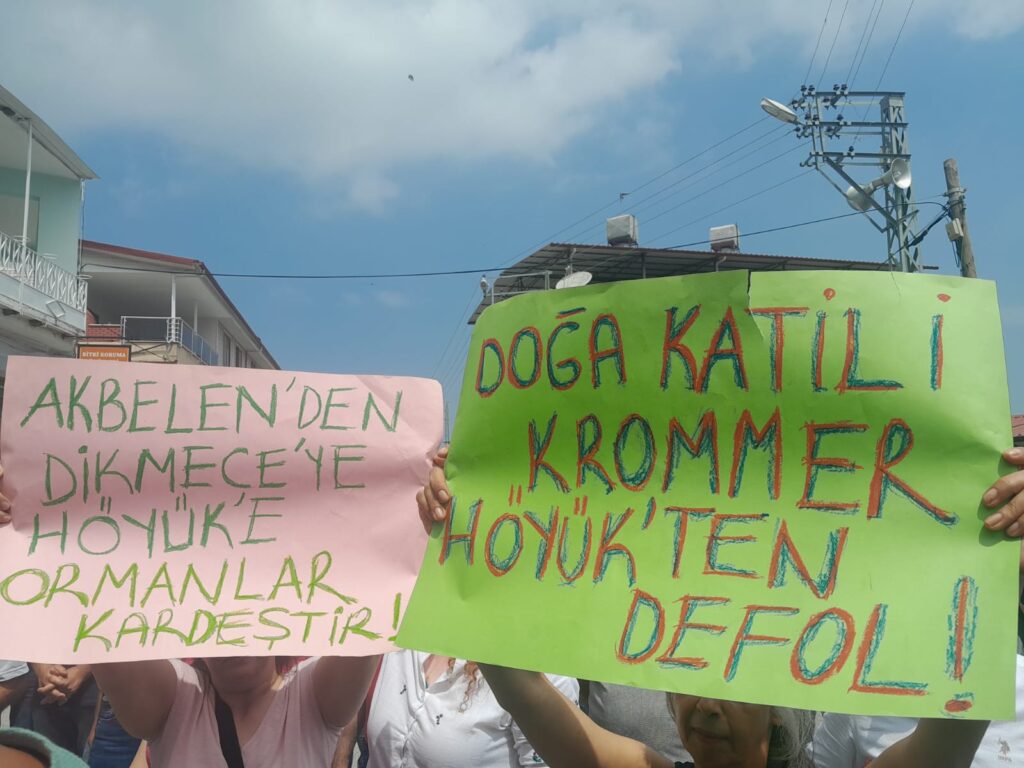 BİTKİ KORUMA
AKBELEN'DEN
DİKMECE'YE
HÖYÜK'E
ORMANLAR
KARDEŞTİR!
DOĞA KATİLİ
KROMMER
HÖYÜK'TEN
DEFOL!